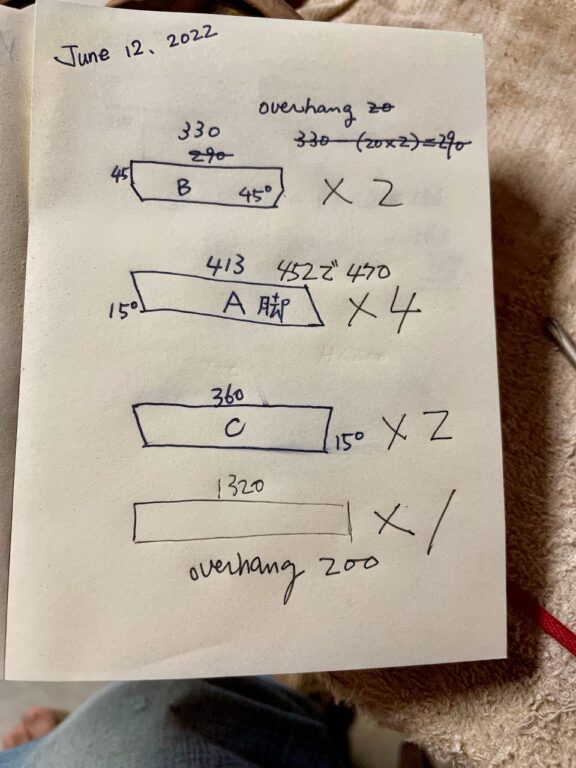 June 12, 2022
overhang 20
330
330 - (20x2)=290
290
45 B 45° X 2
413 452で 470
15° A 脚 X 4
360
C 15° X 2
1320
X 1
overhang 200